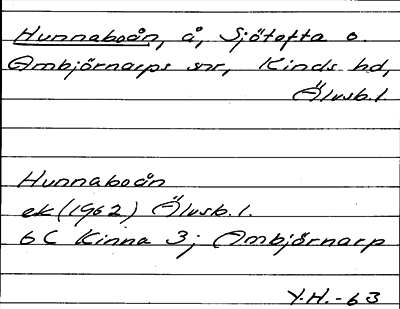 Hunnaboån, å, Sjötofta o.
Ambjörnarps snr, Kinds hd,
Älvsb.l.
Hunnaboån
ek (1962) Älvsb.l.
6C Kinna 3; Ambjörnarp
Y.H.-63